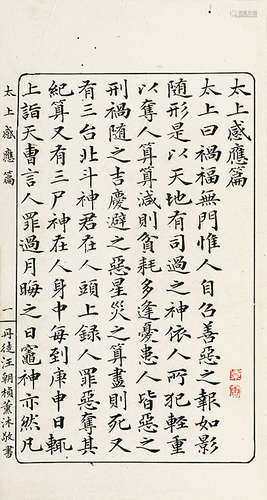 太上感應篇
太上曰禍福無門惟人自召善惡之報如影
随形是以天地有司過之神依人所犯輕重
以奪人算算減則貧耗多逢憂患人皆惡之
刑禍隨之吉慶避之惡星災之算盡則死又
有三台北斗神君在人頭上録人罪惡奪其
紀算又有三尸神在人身中每到庚申日輒
上詣天曹言人罪過月晦之日竈神亦然凡
太上感應篇
一
丹徒汪朝楨薰沐敬書